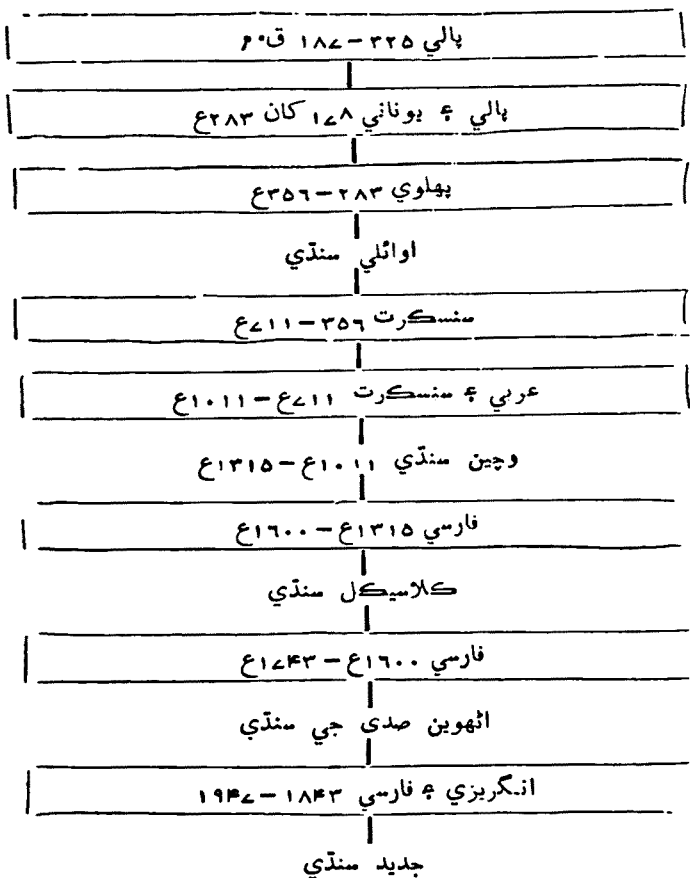 پالي ۳۲۵-۱۸۷ ق۰م
پالي ۽ يوناني ۱۷۸ کان ۲۸۳ع
پهلوي ۲۸۳-۳۵۶ع
اوائلي سنڌي
سنسڪرت ۳۵۶-۷۱۱ع
عربي ۽ سنسڪرت ۷۱۱ع-۱۰۱۱ع
وچين سنڌي ۱۰۱۱ع-۱۳۱۵ع
فارسي ۱۳۱۵ع-۱۶۰۰ع
ڪلاسيڪل سنڌي
فارسي ۱۶۰۰ع-۱۷۴۳ع
اڻهوين صدي جي سنڌي
انگريزي ۽ فارسي ۱۸۴۳-۱۹۴۷
جديد سنڌي